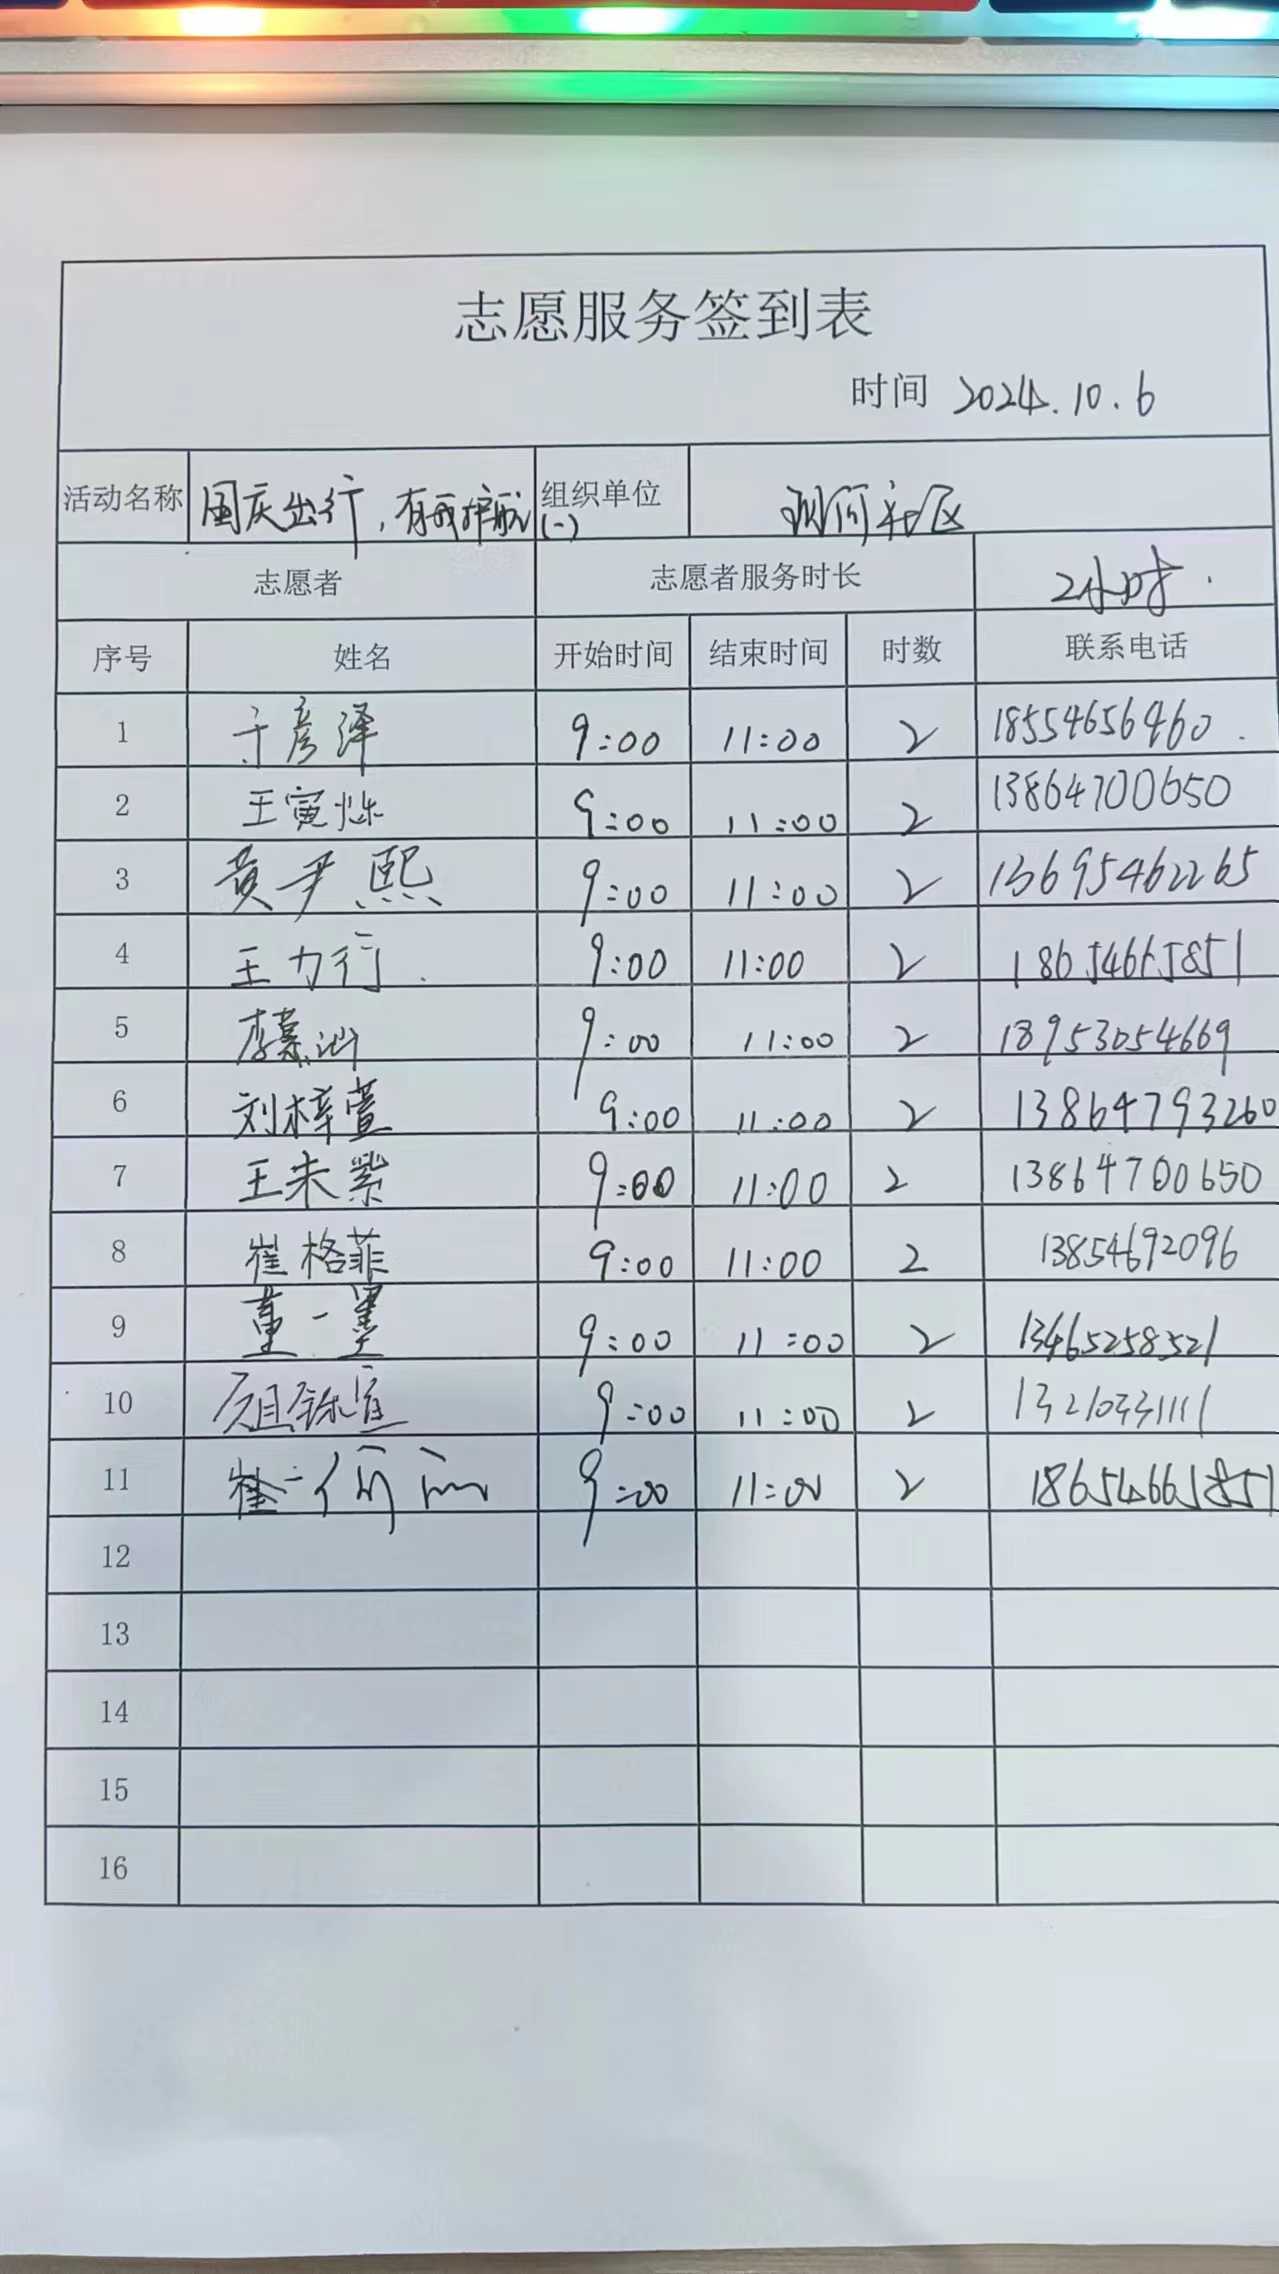 志愿服务签到表
时间 2024.10.6
活动名称 国庆出行，有我护航(一) 组织单位 现河社区
志愿者 志愿者服务时长 2小时.
序号 姓名 开始时间 结束时间 时数 联系电话
1 于彦泽 9:00 11:00 2 18554656460
2 王寅烁 9:00 11:00 2 13864700650
3 黄尹熙 9:00 11:00 2 13695462265
4 王力行 9:00 11:00 2 18654665851
5 李慕汕 9:00 11:00 2 18953054669
6 刘梓萱 9:00 11:00 2 13864793260
7 王未紫 9:00 11:00 2 13864700650
8 崔格菲 9:00 11:00 2 13854692096
9 董一墨 9:00 11:00 2 13465258521
10 9:00 11:00 2 13210331111
11 崔一 9:00 11:00 2 18654665851
12
13
14
15
16